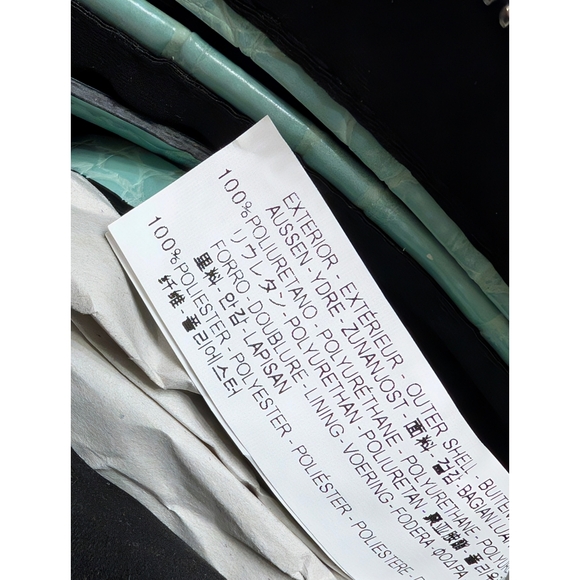 EXTERIOR - EXTÉRIEUR - OUTER SHELL - BUITEN
AUSSEN - YDRE - ZUNANJOST - 面料 겉감 BAGIAN LUA
100% POLIURETANO - POLYURÉTHANE - POLYURETHANE - POLYUR
リウレタン - POLYURETHAN - POLIURETAN
FORRO - DOUBLURE - LINING - VOERING - FODERA - ΦΟΔΡΑ
里料 안감 - LAPISAN
100% POLIESTER - POLYESTER - POLYESTER - POLIÉSTER - POLIESTERE
纤维 폴리에스터